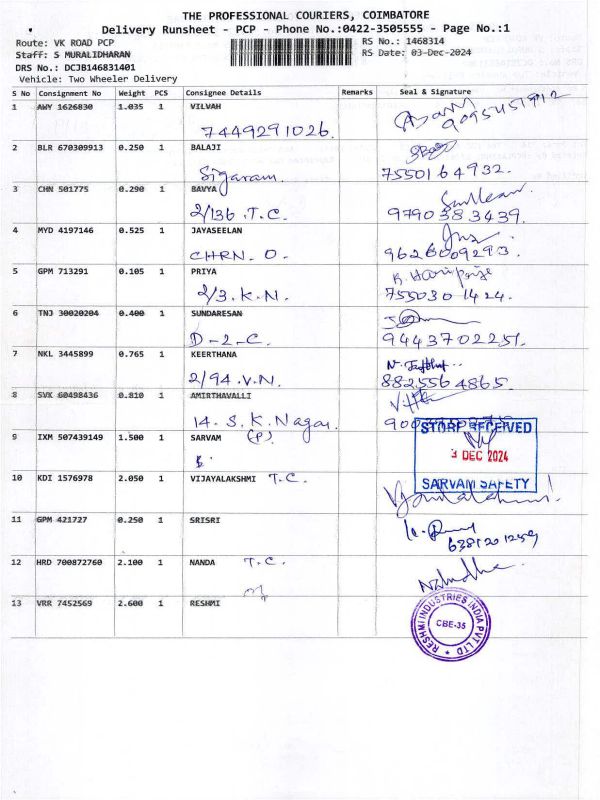 THE PROFESSIONAL COURIERS, COIMBATORE
Delivery Runsheet - PCP - Phone No.:0422-3505555 - Page No.:1
Route: VK ROAD PCP RS No.: 1468314
Staff: S MURALIDHARAN RS Date: 03-Dec-2024
DRS No.: DCJB146831401
Vehicle: Two Wheeler Delivery
S No Consignment No Weight PCS Consignee Details Remarks Seal & Signature
1 AWY 1626830 1.035 1 VILVAH
7449291026. 9095451912
2 BLR 670309913 0.250 1 BALAJI
Sigaram. 7550164932.
3 CHN 501775 0.290 1 BAVYA
2/136 .T.C. 9790383439.
4 MYD 4197146 0.525 1 JAYASEELAN
CHRN. O. 9626009293.
5 GPM 713291 0.105 1 PRIYA
2/3. K.N. 755030 1424.
6 TNJ 30020204 0.400 1 SUNDARESAN
D-2-C. 9443702251.
7 NKL 3445899 0.765 1 KEERTHANA
2/94 .V.N. 8825564865.
8 SVK 60498436 0.810 1 AMIRTHAVALLI
14. S. K. Nagar.
9 IXM 507439149 1.500 1 SARVAM (P)
STORE RECEIVED
3 DEC 2024
SARVAM SAFETY
10 KDI 1576978 2.050 1 VIJAYALAKSHMI T.C.
11 GPM 421727 0.250 1 SRISRI
6381201259
12 HRD 700872760 2.100 1 NANDA T.C.
13 VRR 7452569 2.600 1 RESHMI
RESHMI INDUSTRIES INDIA PVT LTD
CBE-35